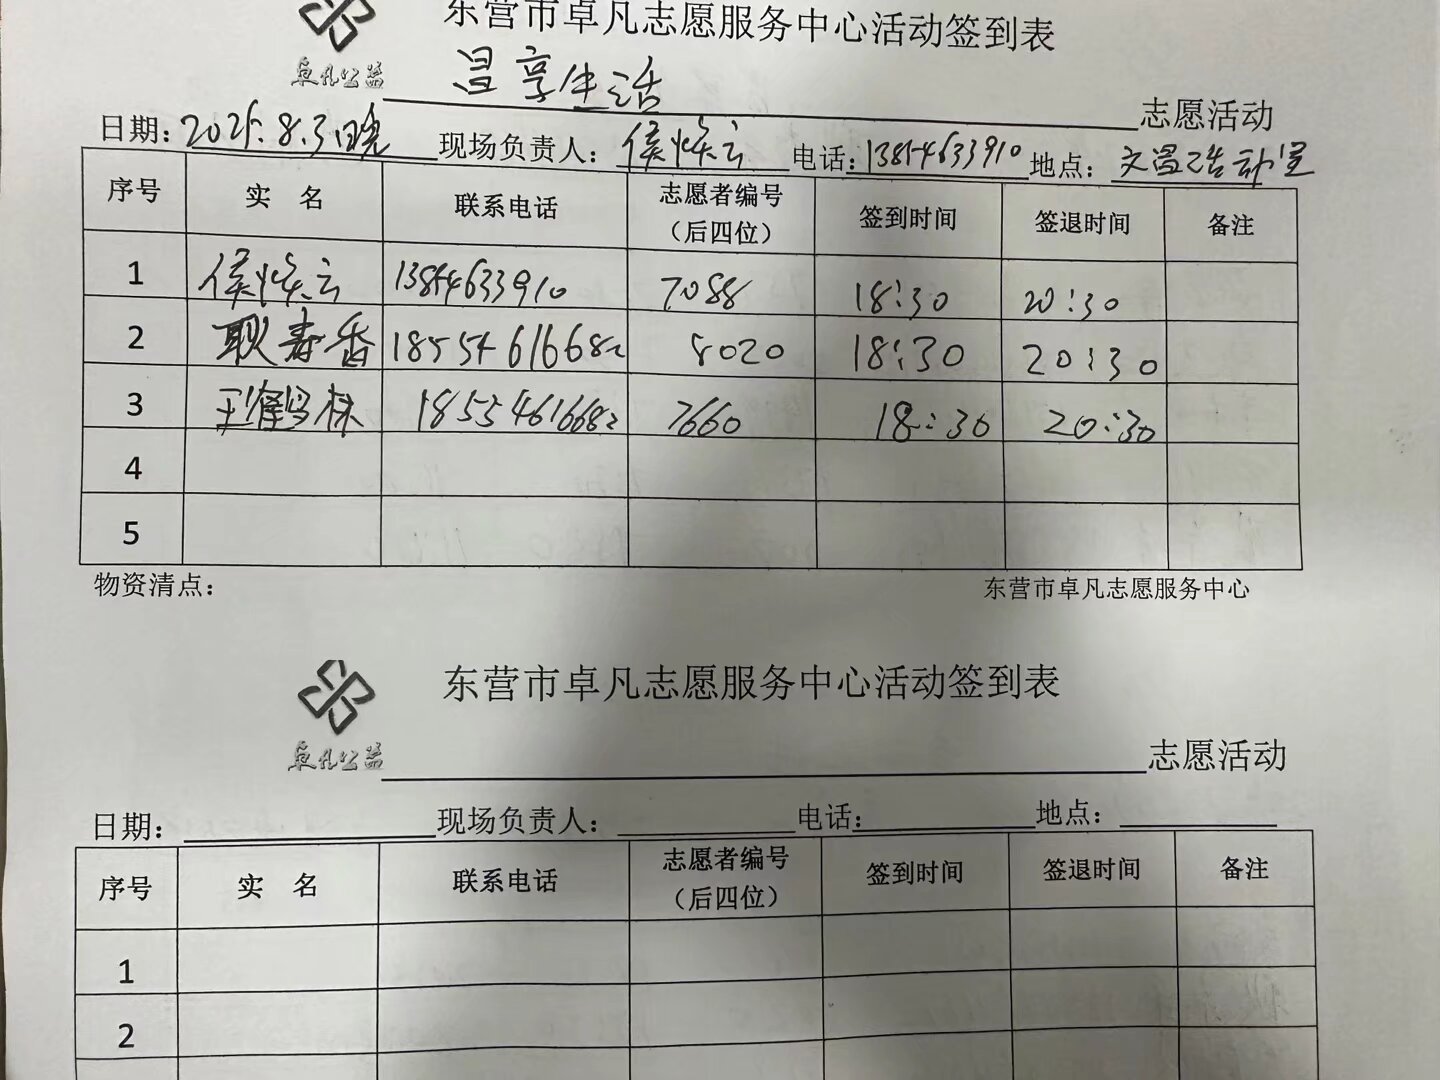 东营市卓凡志愿服务中心活动签到表
卓凡公益
昌享生活 志愿活动
日期：2025.8.3日晚 现场负责人：侯焕云 电话：13854633910 地点：文昌活动室
序号 实 名 联系电话 志愿者编号（后四位） 签到时间 签退时间 备注
1 侯焕云 13854633910 7088 18:30 20:30
2 耿寿香 18554616682 8020 18:30 20:30
3 18554616682 7660 18:30 20:30
4
5
物资清点： 东营市卓凡志愿服务中心
东营市卓凡志愿服务中心活动签到表
卓凡公益
志愿活动
日期： 现场负责人： 电话： 地点：
序号 实 名 联系电话 志愿者编号（后四位） 签到时间 签退时间 备注
1
2